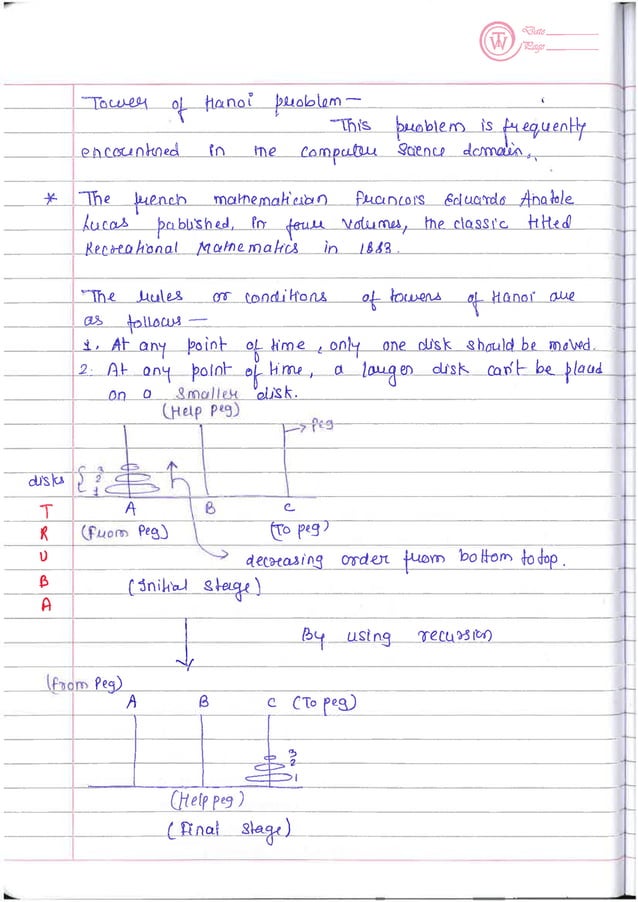 Date
Page
Tower of Hanoi problem —
This problem is frequently
encountered in the computer science domain.
* The french mathematician Francois Eduardo Anatole
Lucas published, in four volumes, the classic titled
Recreational Mathematics in 1883.
The rules or conditions of towers of Hanoi are
as follows —
1. At any point of time, only one disk should be moved.
2. At any point of time, a larger disk can't be placed
on a smaller disk.
(Help peg)
Peg
disks { 3
2
1
A B C
(From Peg) (To peg)
decreasing order from bottom to top.
(Initial stage)
T
R
U
B
A
By using recursion
(from Peg)
A B C (To peg)
3
2
1
(Help peg)
(Final stage)